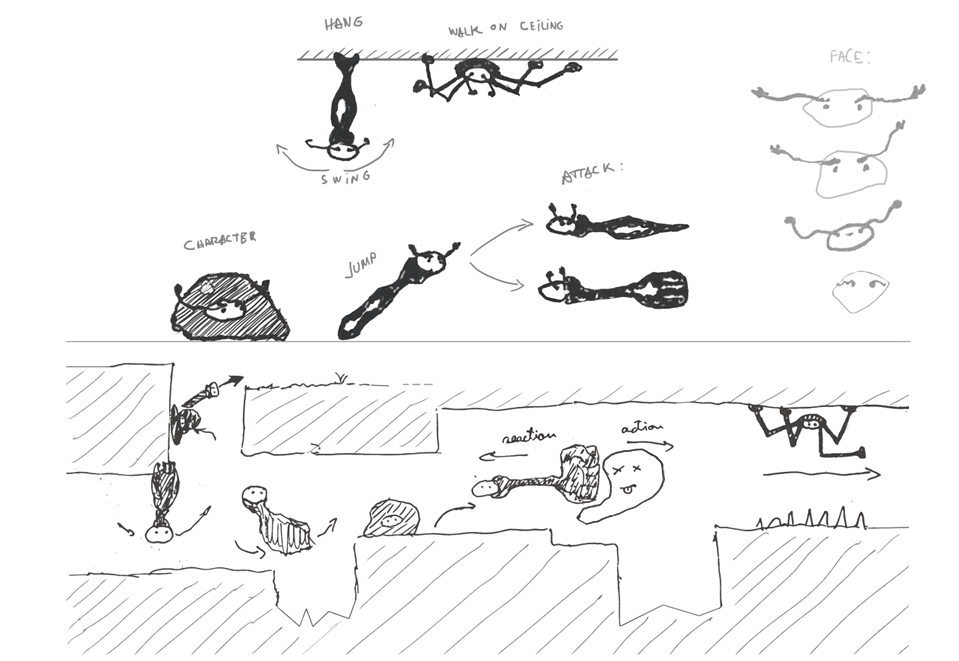 HANG
WALK ON CEILING
FACE:
SWING
ATTACK:
CHARACTER
JUMP
reaction
action